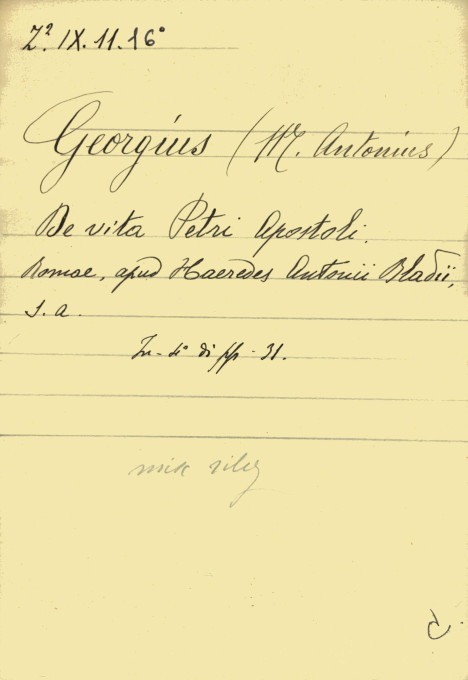 Z². IX. 11. 16°
Georgius (M. Antonius)
De vita Petri Apostoli.
Romae, apud Haeredes Antonii Bladii,
s. a.
In-4° di pp. 31.
misc